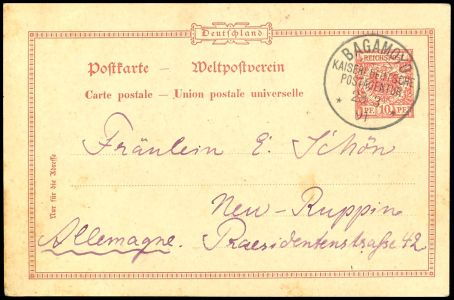 Deutschland
Postkarte — Weltpostverein
Carte postale — Union postale universelle
REICHSPOST
PF. 10 PF.
BAGAMOYO
KAISERL. DEUTSCHE
POSTAGENTUR
Nur für die Adresse
Fräulein E. Schön
Neu-Ruppin
Allemagne. Praesidentenstraße 42